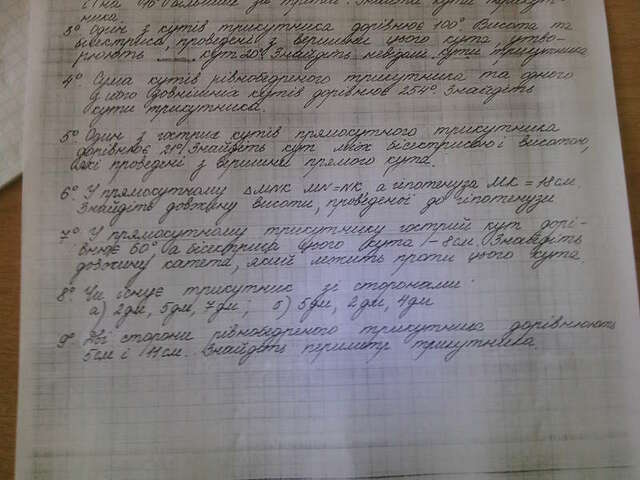 більший за третій. Знайти кути трикут-
ника.
3° Один з кутів трикутника дорівнює 100° Висота та
бісектриса, проведені з вершини цього кута утво-
рюють кут 20° Знайдіть невідомі кути трикутника
4° Сума кутів рівнобедреного трикутника та одного
з його зовнішніх кутів дорівнює 254°. Знайдіть
кути трикутника.
5° Один з гострих кутів прямокутного трикутника
дорівнює 21° Знайдіть кут між бісектрисою і висотою,
які проведені з вершини прямого кута.
6° У прямокутному ΔMNK MN=NK, а гіпотенуза MK = 18см.
Знайдіть довжину висоти, проведеної до гіпотенузи
7° У прямокутному трикутнику гострий кут дорі-
внює 60° а бісектриса цього кута - 8см. Знайдіть
довжину катета, який лежить проти цього кута.
8° Чи існує трикутник зі сторонами:
а) 2дм, 5дм, 7дм; б) 5дм, 2дм, 4дм
9° Дві сторони рівнобедреного трикутника дорівнюють
5см і 11см. Знайдіть периметр трикутника.